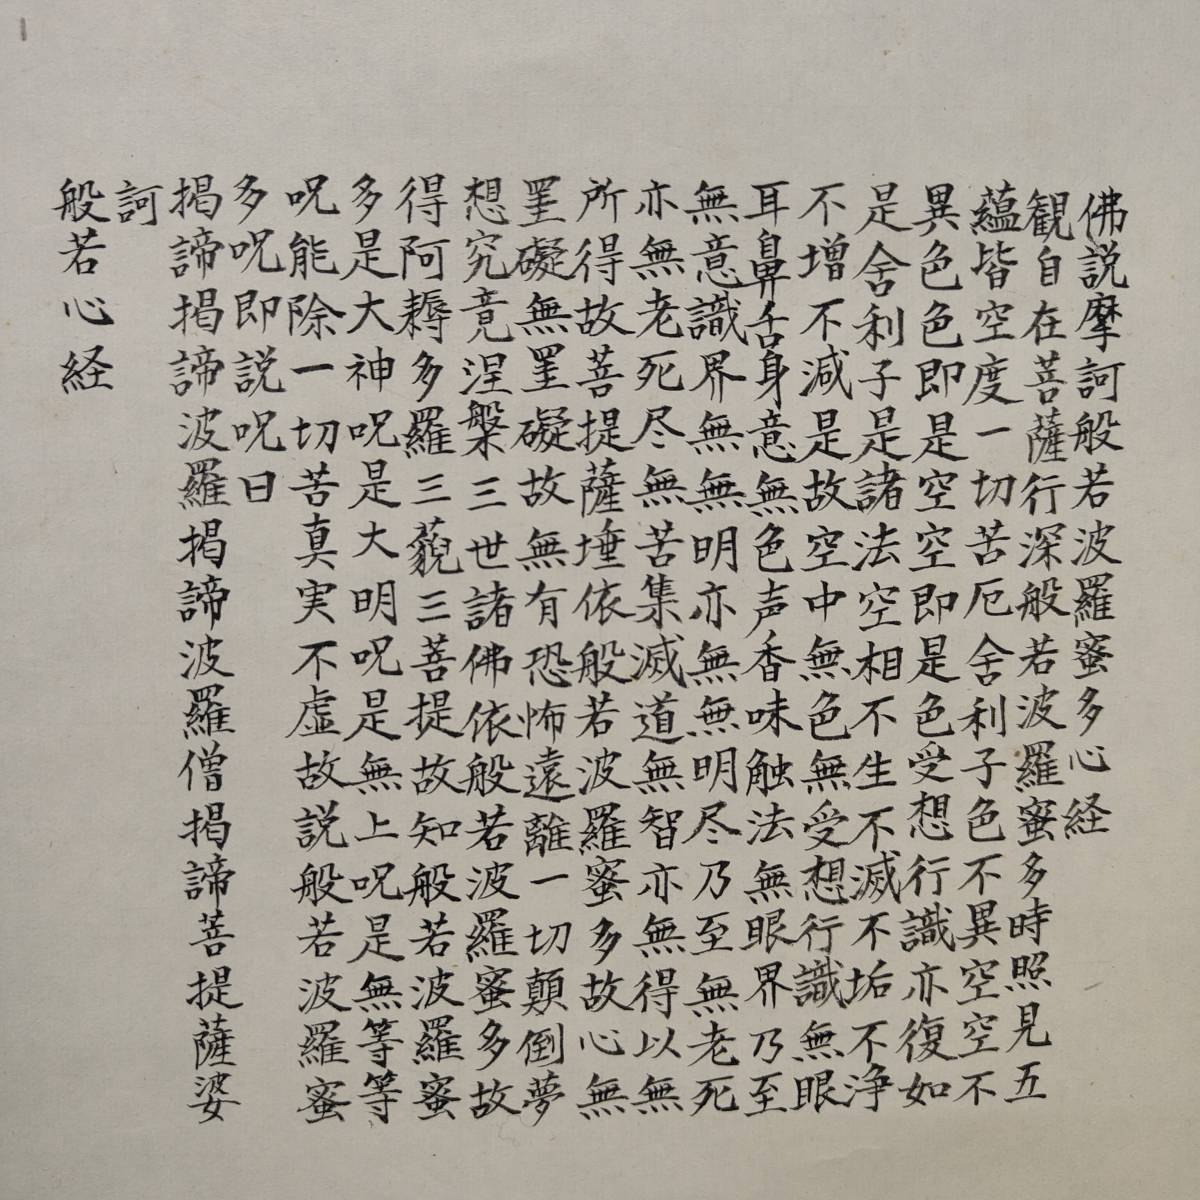 佛説摩訶般若波羅蜜多心経
観自在菩薩行深般若波羅蜜多時照見五
蘊皆空度一切苦厄舎利子色不異空空不
異色色即是空空即是色受想行識亦復如
是舎利子是諸法空相不生不滅不垢不浄
不増不減是故空中無色無受想行識無眼
耳鼻舌身意無色声香味触法無眼界乃至
無意識界無無明亦無無明尽乃至無老死
亦無老死尽無苦集滅道無智亦無得以無
所得故菩提薩埵依般若波羅蜜多故心無
罣礙無罣礙故無有恐怖遠離一切顛倒夢
想究竟涅槃三世諸佛依般若波羅蜜多故
得阿耨多羅三藐三菩提故知般若波羅蜜
多是大神呪是大明呪是無上呪是無等等
呪能除一切苦真実不虚故説般若波羅蜜
多呪即説呪曰
掲諦掲諦波羅掲諦波羅僧掲諦菩提薩婆
訶
般若心経